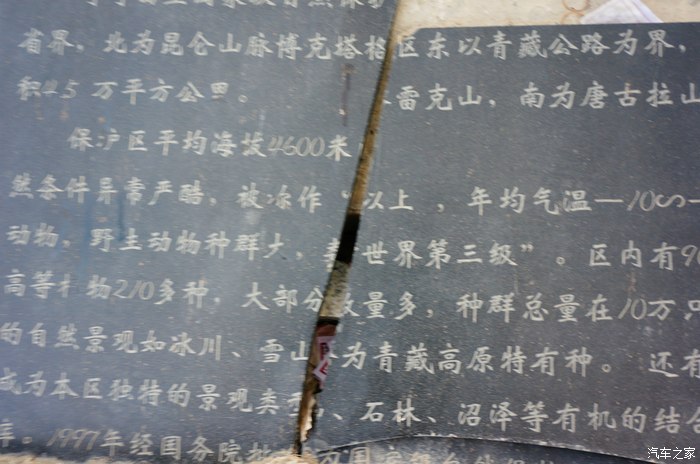 省界，北为昆仑山脉博克塔格区东以青藏公路为界，
积4.5 万平方公里。 雷克山，南为唐古拉山
保护区平均海拔4600米 以上 ，年均气温—10∽—
然条件异常严酷，被冻作“ 世界第三级”。区内有9
动物，野生动物种群大， 数量多，种群总量在10万只
高等 物210多种，大部分 为青藏高原特有种。 还有
的自然景观如冰川、雪山 、石林、沼泽等有机的结合
成为本区独特的景观类
库。1997年经国务院批 为国
汽车之家